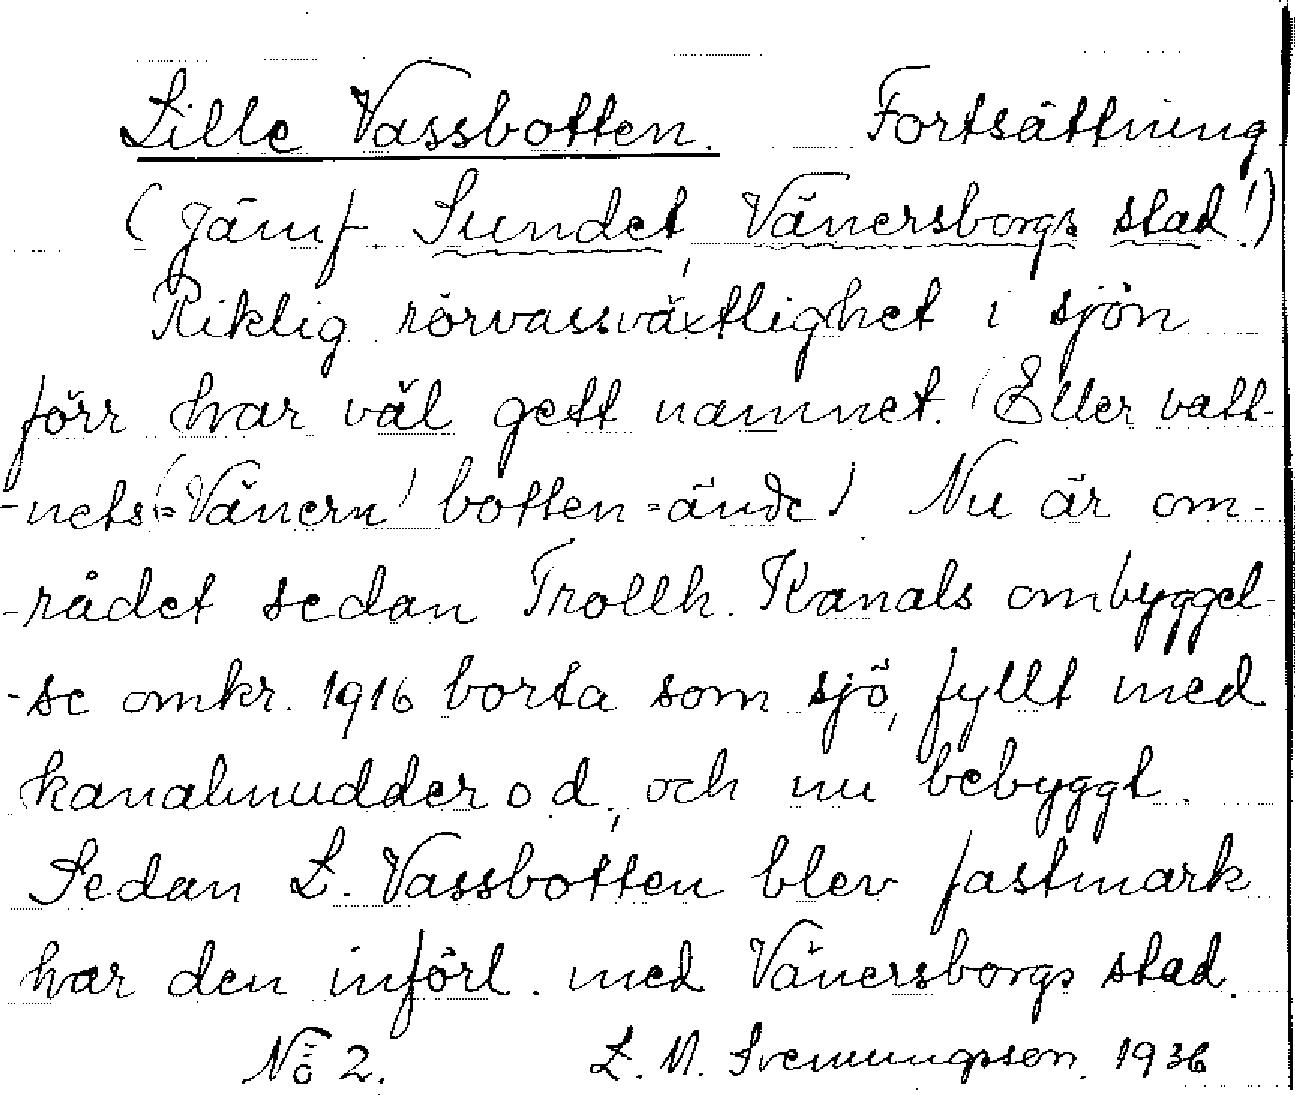 Lille Vassbotten. Fortsättning
(Jämf. Sundet, Vänersborgs stad!)
Riklig rörvassväxtlighet i sjön
förr har väl gett namnet. (Eller vatt-
-nets (=Vänern) botten=ände) Nu är om-
-rådet sedan Trollh. Kanals ombyggel-
-se omkr. 1916 borta som sjö, fyllt med
kanalmudder o.d., och nu bebyggt.
Sedan L. Vassbotten blev fastmark
har den införl. med Vänersborgs stad.
No 2. L. M. Svenungsson. 1936